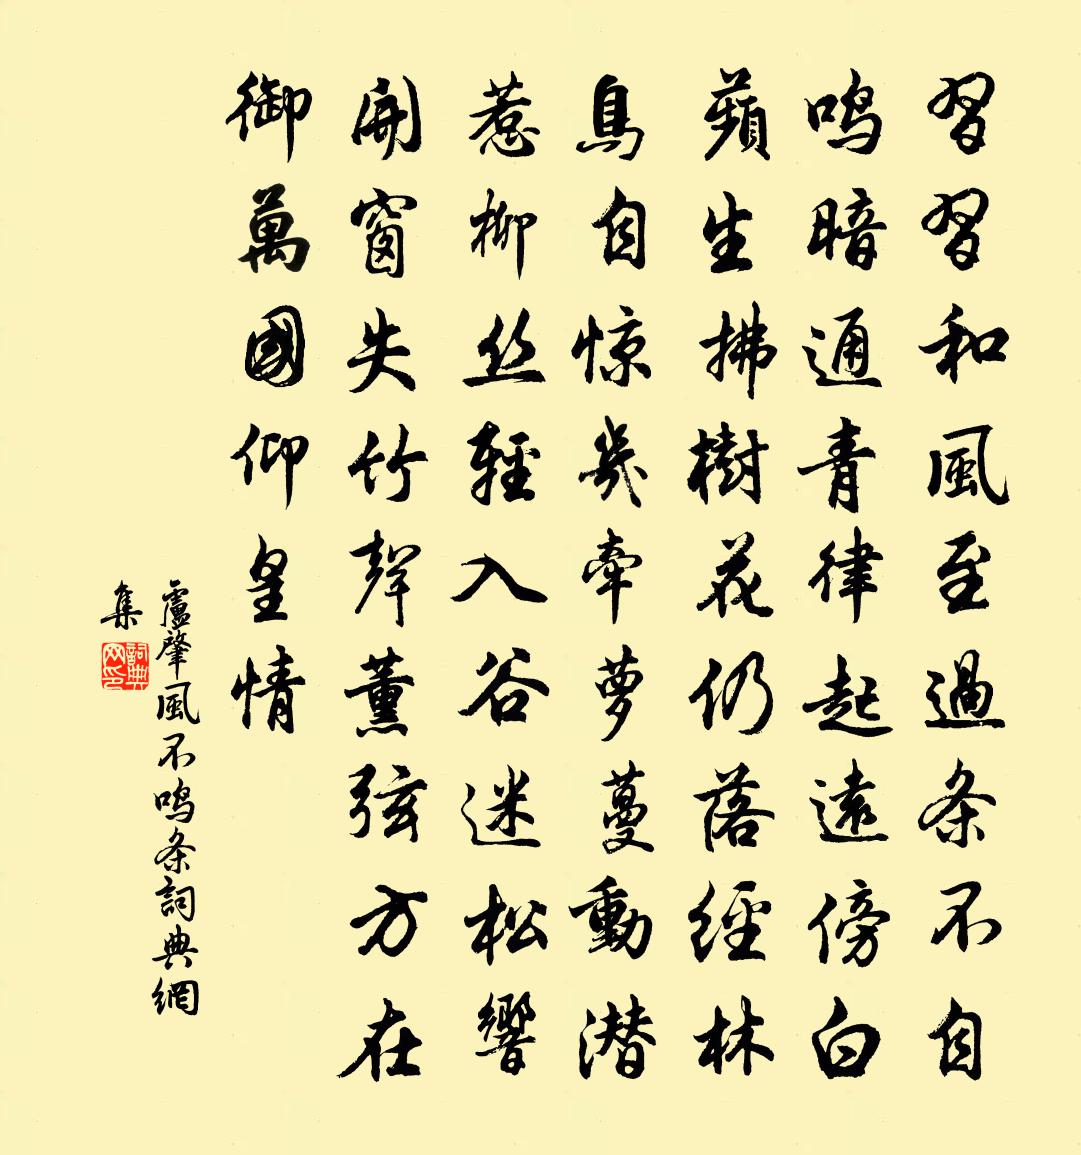 習習和風至過条不自
鸣暗通青律起遠傍白
蘋生拂樹花仍落經林
鳥自惊幾牽萝蔓動潜
惹柳丝輕入谷迷松響
開窗失竹聲薰弦方在
御萬國仰皇情
盧肇風不鸣条詞典網
集
詞典
网印